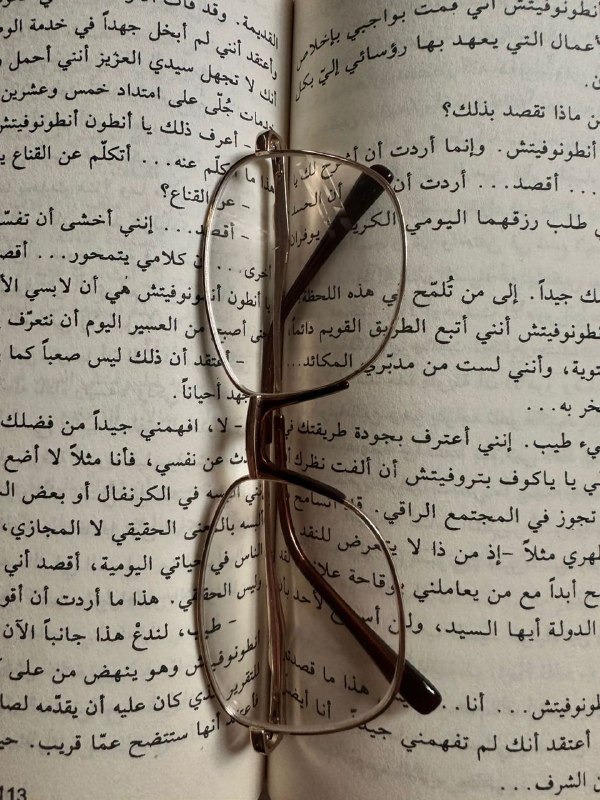 أنطونوفيتش أني قمت بواجبي بإخلاص
الأعمال التي يعهد بها رؤسائي إليّ بكل
ماذا تقصد بذلك؟
أنطونوفيتش. وإنما أردت أن لك يا
... أقصد... أردت أن أن الحسد
طلب رزقهما اليومي الكريم يوفران
لك جيداً. إلى من تُلمّح في هذه اللحظة
أنطونوفيتش أنني أتبع الطريق القويم دائماً،
وأنني لست من مدبّري المكائد...
به...
طيب. إنني أعترف بجودة طريقتك في
يا ياكوف بتروفيتش أن ألفت نظرك
تجوز في المجتمع الراقي.
ظهري مثلاً –إذ من ذا لا يتعرض للنقد
أبداً مع من يعاملني بوقاحة
الدولة أيها السيد، ولن أسمح لأحد
هذا ما
... أنا... أنا أيضاً
أعتقد أنك لم تفهمني جيداً
الشرف...
القديمة. وقد
وأعتقد أنني لم أبخل جهداً في خدمة
أنك لا تجهل سيدي العزيز أنني أحمل
خدمات جُلّى على امتداد خمس وعشرين
- أعرف ذلك يا أنطون أنطونوفيتش
هذا ما عنه... أتكلّم عن القناع
- عن القناع؟
- أقصد... إنني أخشى أن
أن كلامي يتمحور... أقصد
أخرى...
يا أنطون أنطونوفيتش هي أن لابسي
أصبح من العسير اليوم أن نتعرّف
- أعتقد أن ذلك ليس صعباً كما
جهد أحياناً.
- لا، افهمني جيداً من فضلك
عن نفسي، فأنا مثلاً لا أضع
في الكرنفال أو بعض
بالمعنى الحقيقي لا المجازي،
الناس في حياتي اليومية، أقصد أني
وليس هذا ما أردت أن
- طيب، لندعْ هذا جانباً الآن
وهو ينهض من على
للتقرير الذي كان عليه أن يقدّمه
أنها ستتضح عمّا قريب.
113